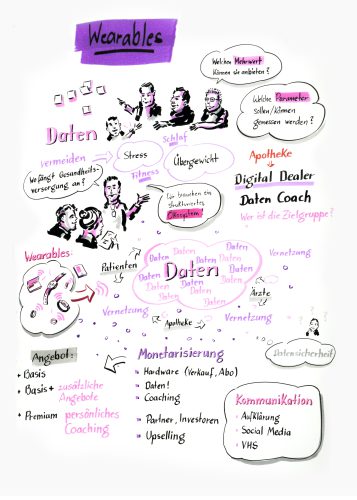 Wearables
Welchen Mehrwert
können sie anbieten?
Welche Parameter
sollen/können
gemessen werden?
Daten
vermeiden
Stress
Schlaf
Übergewicht
Fitness
Wo fängt Gesundheits-
versorgung an?
Wir brauchen ein
strukturiertes
Ökosystem!
Apotheke
Digital Dealer
Daten Coach
Wer ist die Zielgruppe?
Wearables
Patienten
Vernetzung
Daten
Daten Daten Daten
Daten Daten
Daten Daten Daten
Daten Daten
Daten Daten
Daten Daten
Vernetzung
Ärzte
Vernetzung
Vernetzung
Apotheke
Datensicherheit
Angebot:
Basis
Basis + zusätzliche
Angebote
Premium persönliches
Coaching
Monetarisierung
Hardware (Verkauf, Abo)
Daten!
Coaching
Partner, Investoren
Upselling
Kommunikation
Aufklärung
Social Media
VHS